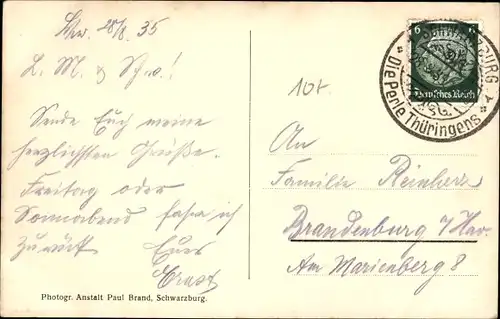 Schw. 28/8. 35
L. M. & Schw.!
Sende Euch meine
herzlichsten Grüße.
Freitag oder
Sonnabend fahre ich
zurück
Euer
Ernst
Photogr. Anstalt Paul Brand, Schwarzburg.
6 6
Deutsches Reich
SCHWARZBURG
* Die Perle Thüringens *
10t
An
Familie Reinherz
Brandenburg / Hav.
Am Marienberg 8